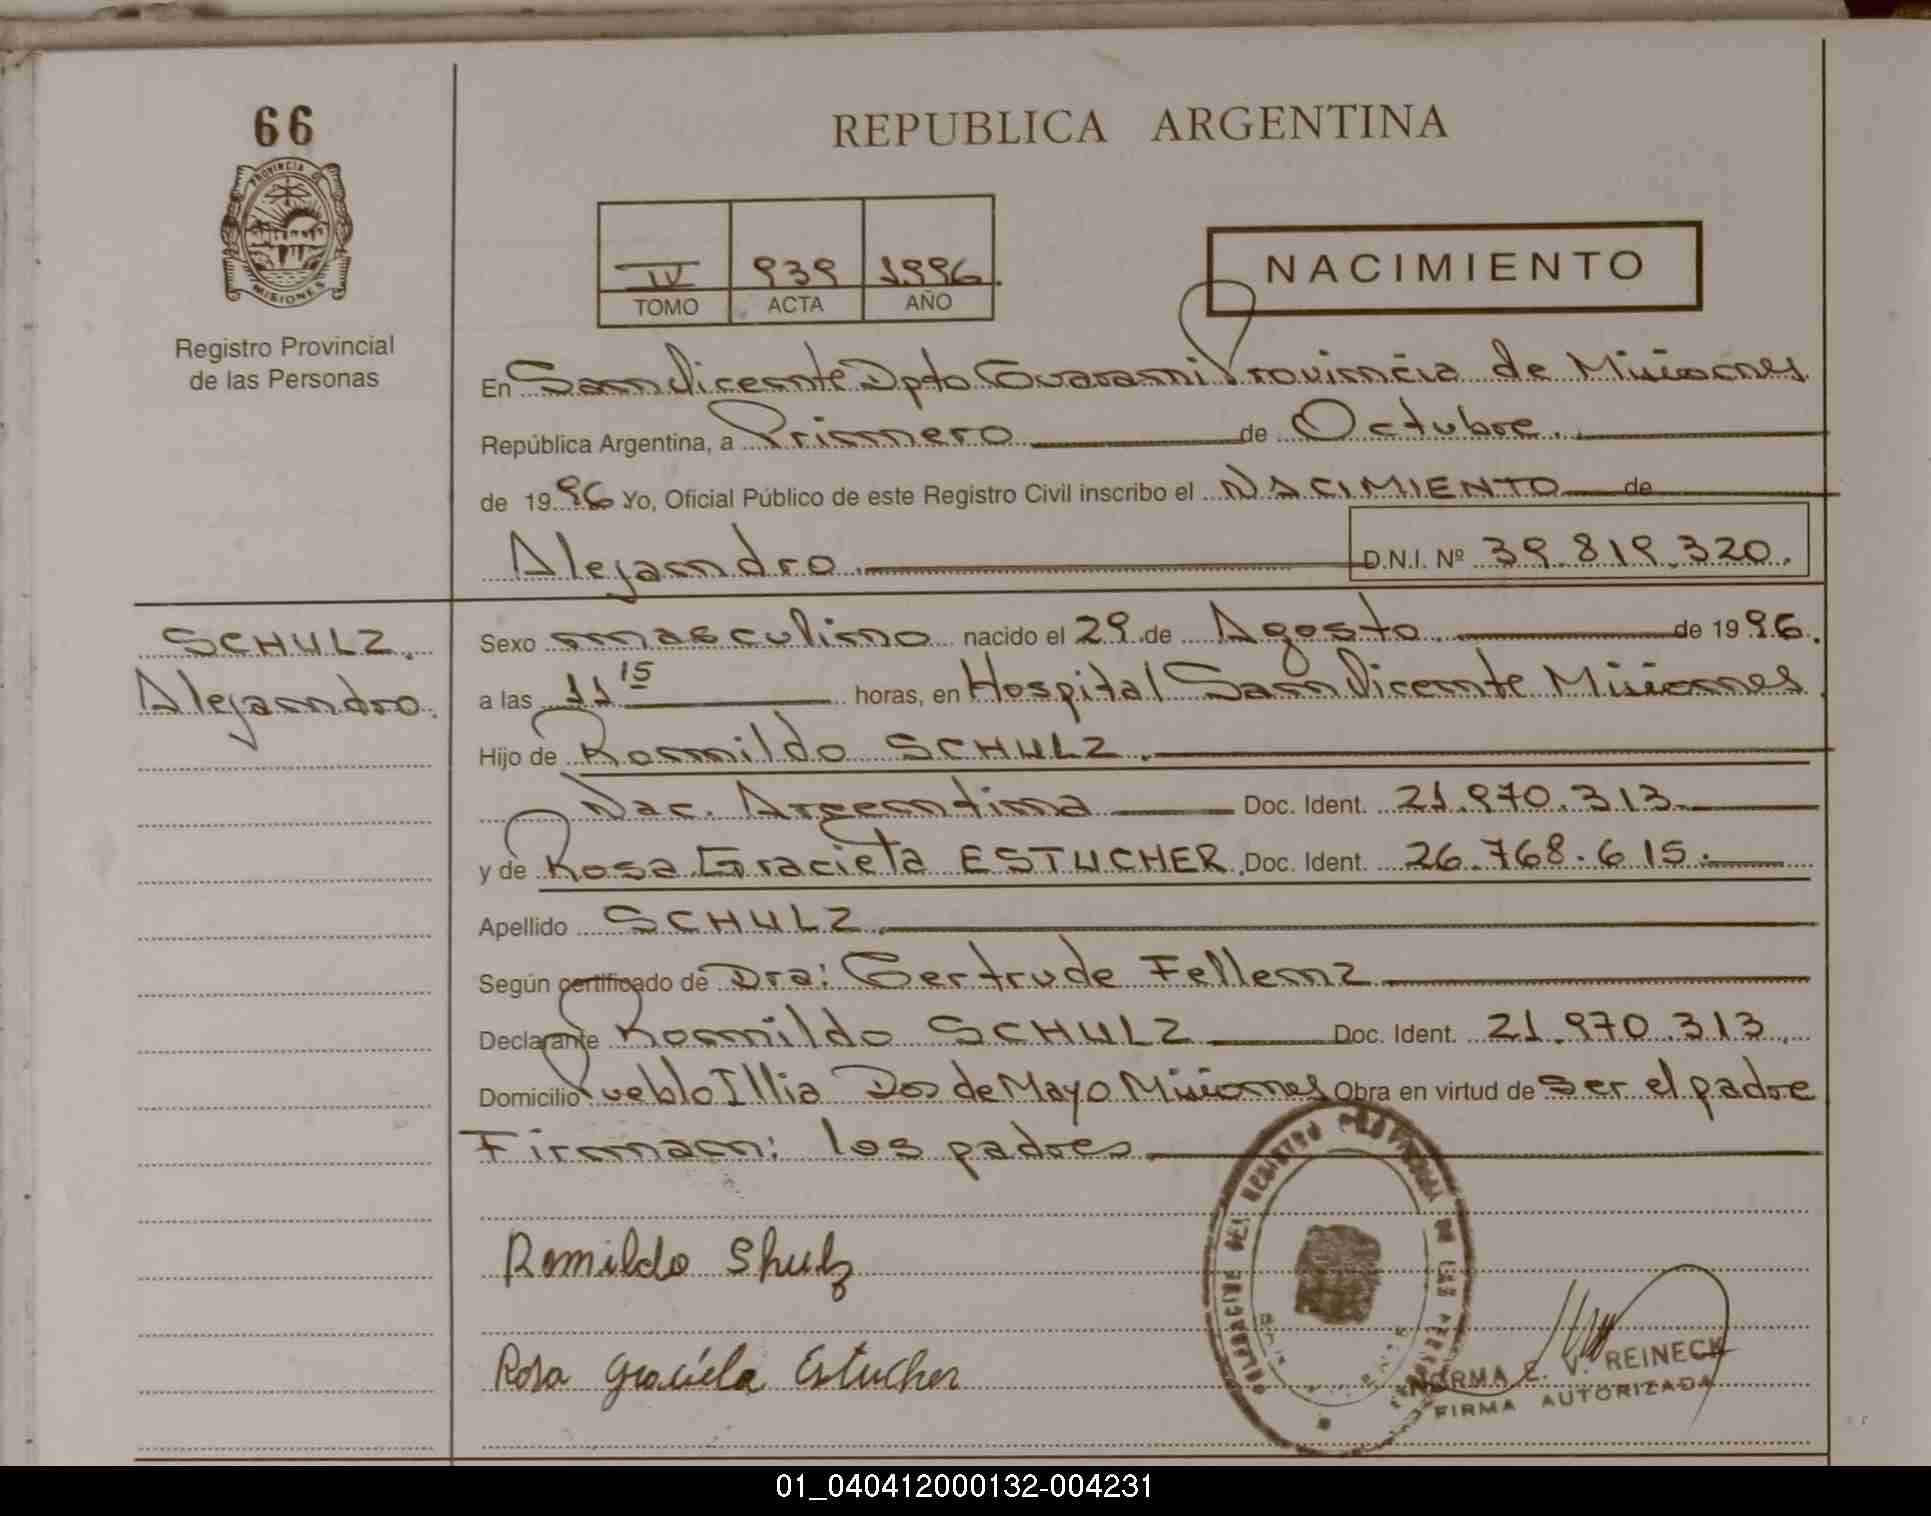 66
PROVINCIA DE
MISIONES
Registro Provincial
de las Personas
REPUBLICA ARGENTINA
IV 939 1996.
TOMO ACTA AÑO
NACIMIENTO
En San Vicente Dpto Guarani Provincia de Misiones
República Argentina, a Primero de Octubre.
de 1996 Yo, Oficial Público de este Registro Civil inscribo el NACIMIENTO de
Alejandro. D.N.I. Nº 39.819.320.
SCHULZ.
Alejandro.
Sexo masculino nacido el 29 de Agosto de 1996.
a las 11 15 horas, en Hospital San Vicente Misiones
Hijo de Romildo SCHULZ.
Nac. Argentina Doc. Ident. 21.970.313.
y de Rosa Graciela ESTUCHER. Doc. Ident. 26.768.615.
Apellido SCHULZ.
Según certificado de Dra: Gertrude Fellenz
Declarante Romildo SCHULZ Doc. Ident. 21.970.313
Domicilio Pueblo Illia Dos de Mayo Misiones Obra en virtud de ser el padre
Firman: los padres
Romildo Shulz
Rosa Graciela Estucher
DELEGACION DEL REGISTRO PROVINCIAL DE LAS
NORMA E. V. REINECK
FIRMA AUTORIZADA
01_040412000132-004231